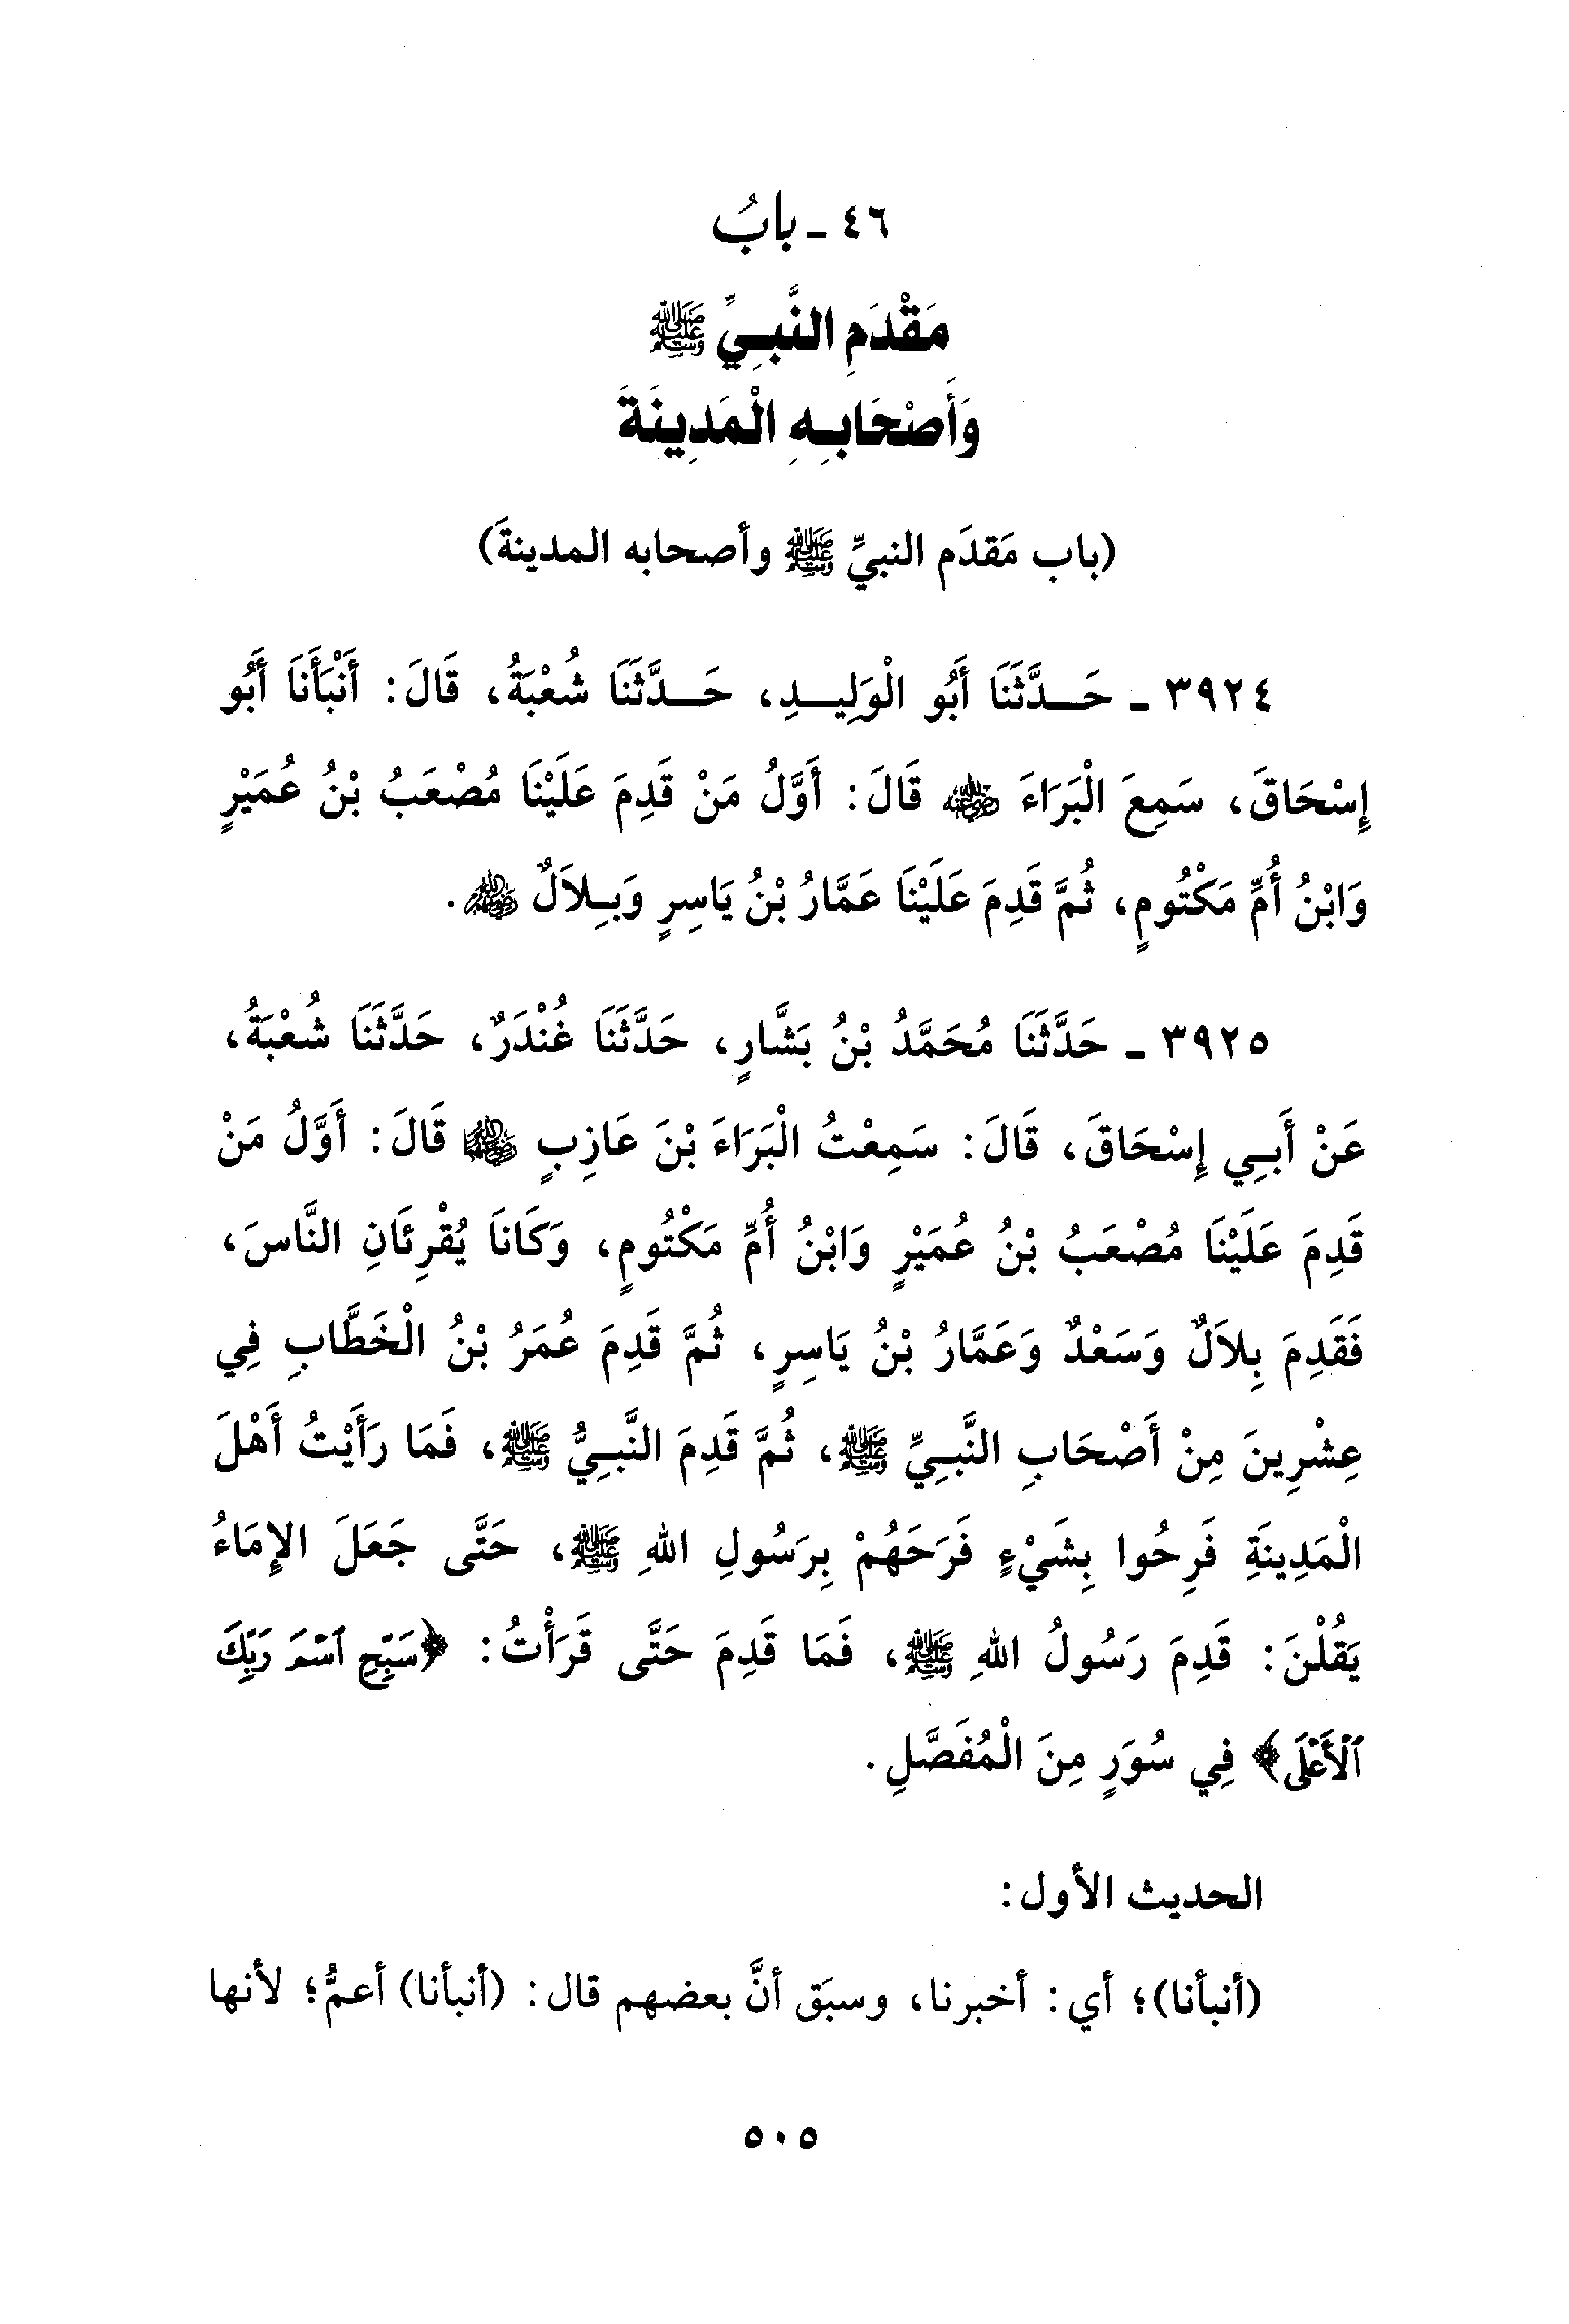 ٤٦ ـ بابُ
مَقْدَمِ النَّبِيِّ ﷺ
وَأَصْحَابِهِ الْمَدِينَةَ
(باب مَقدَم النبيِّ ﷺ وأصحابه المدينةَ)
٣٩٢٤ ـ حَدَّثَنَا أَبُو الْوَلِيدِ، حَدَّثَنَا شُعْبَةُ، قَالَ: أَنْبَأَنَا أَبُو
إِسْحَاقَ، سَمِعَ الْبَرَاءَ رضي الله عنه قَالَ: أَوَّلُ مَنْ قَدِمَ عَلَيْنَا مُصْعَبُ بْنُ عُمَيْرٍ
وَابْنُ أُمِّ مَكْتُومٍ، ثُمَّ قَدِمَ عَلَيْنَا عَمَّارُ بْنُ يَاسِرٍ وَبِلاَلٌ رضي الله عنهم.
٣٩٢٥ ـ حَدَّثَنَا مُحَمَّدُ بْنُ بَشَّارٍ، حَدَّثَنَا غُنْدَرٌ، حَدَّثَنَا شُعْبَةُ،
عَنْ أَبِي إِسْحَاقَ، قَالَ: سَمِعْتُ الْبَرَاءَ بْنَ عَازِبٍ رضي الله عنهما قَالَ: أَوَّلُ مَنْ
قَدِمَ عَلَيْنَا مُصْعَبُ بْنُ عُمَيْرٍ وَابْنُ أُمِّ مَكْتُومٍ، وَكَانَا يُقْرِئَانِ النَّاسَ،
فَقَدِمَ بِلاَلٌ وَسَعْدٌ وَعَمَّارُ بْنُ يَاسِرٍ، ثُمَّ قَدِمَ عُمَرُ بْنُ الْخَطَّابِ فِي
عِشْرِينَ مِنْ أَصْحَابِ النَّبِيِّ ﷺ، ثُمَّ قَدِمَ النَّبِيُّ ﷺ، فَمَا رَأَيْتُ أَهْلَ
الْمَدِينَةِ فَرِحُوا بِشَيْءٍ فَرَحَهُمْ بِرَسُولِ اللهِ ﷺ، حَتَّى جَعَلَ الإِمَاءُ
يَقُلْنَ: قَدِمَ رَسُولُ اللهِ ﷺ، فَمَا قَدِمَ حَتَّى قَرَأْتُ: ﴿سَبِّحِ ٱسْمَ رَبِّكَ
ٱلْأَعْلَى﴾ فِي سُوَرٍ مِنَ الْمُفَصَّلِ.
الحديث الأول:
(أنبأنا)؛ أي: أخبرنا، وسبَق أنَّ بعضهم قال: (أنبأنا) أعمُّ؛ لأنها
٥٠٥